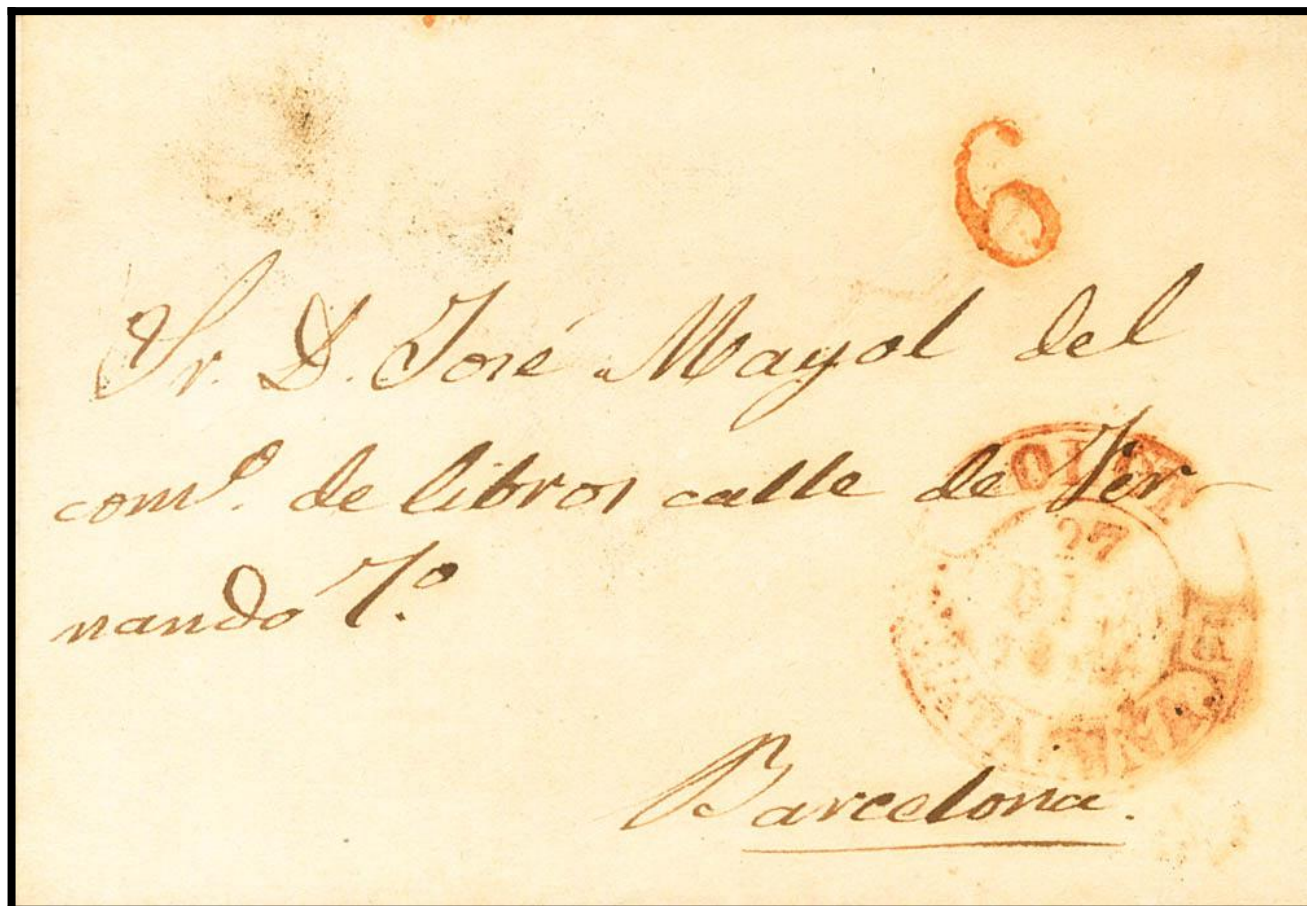 6
Sr. D. José Mayol del
com.º de libros calle de Fer-
nando 7.º
Barcelona.
27